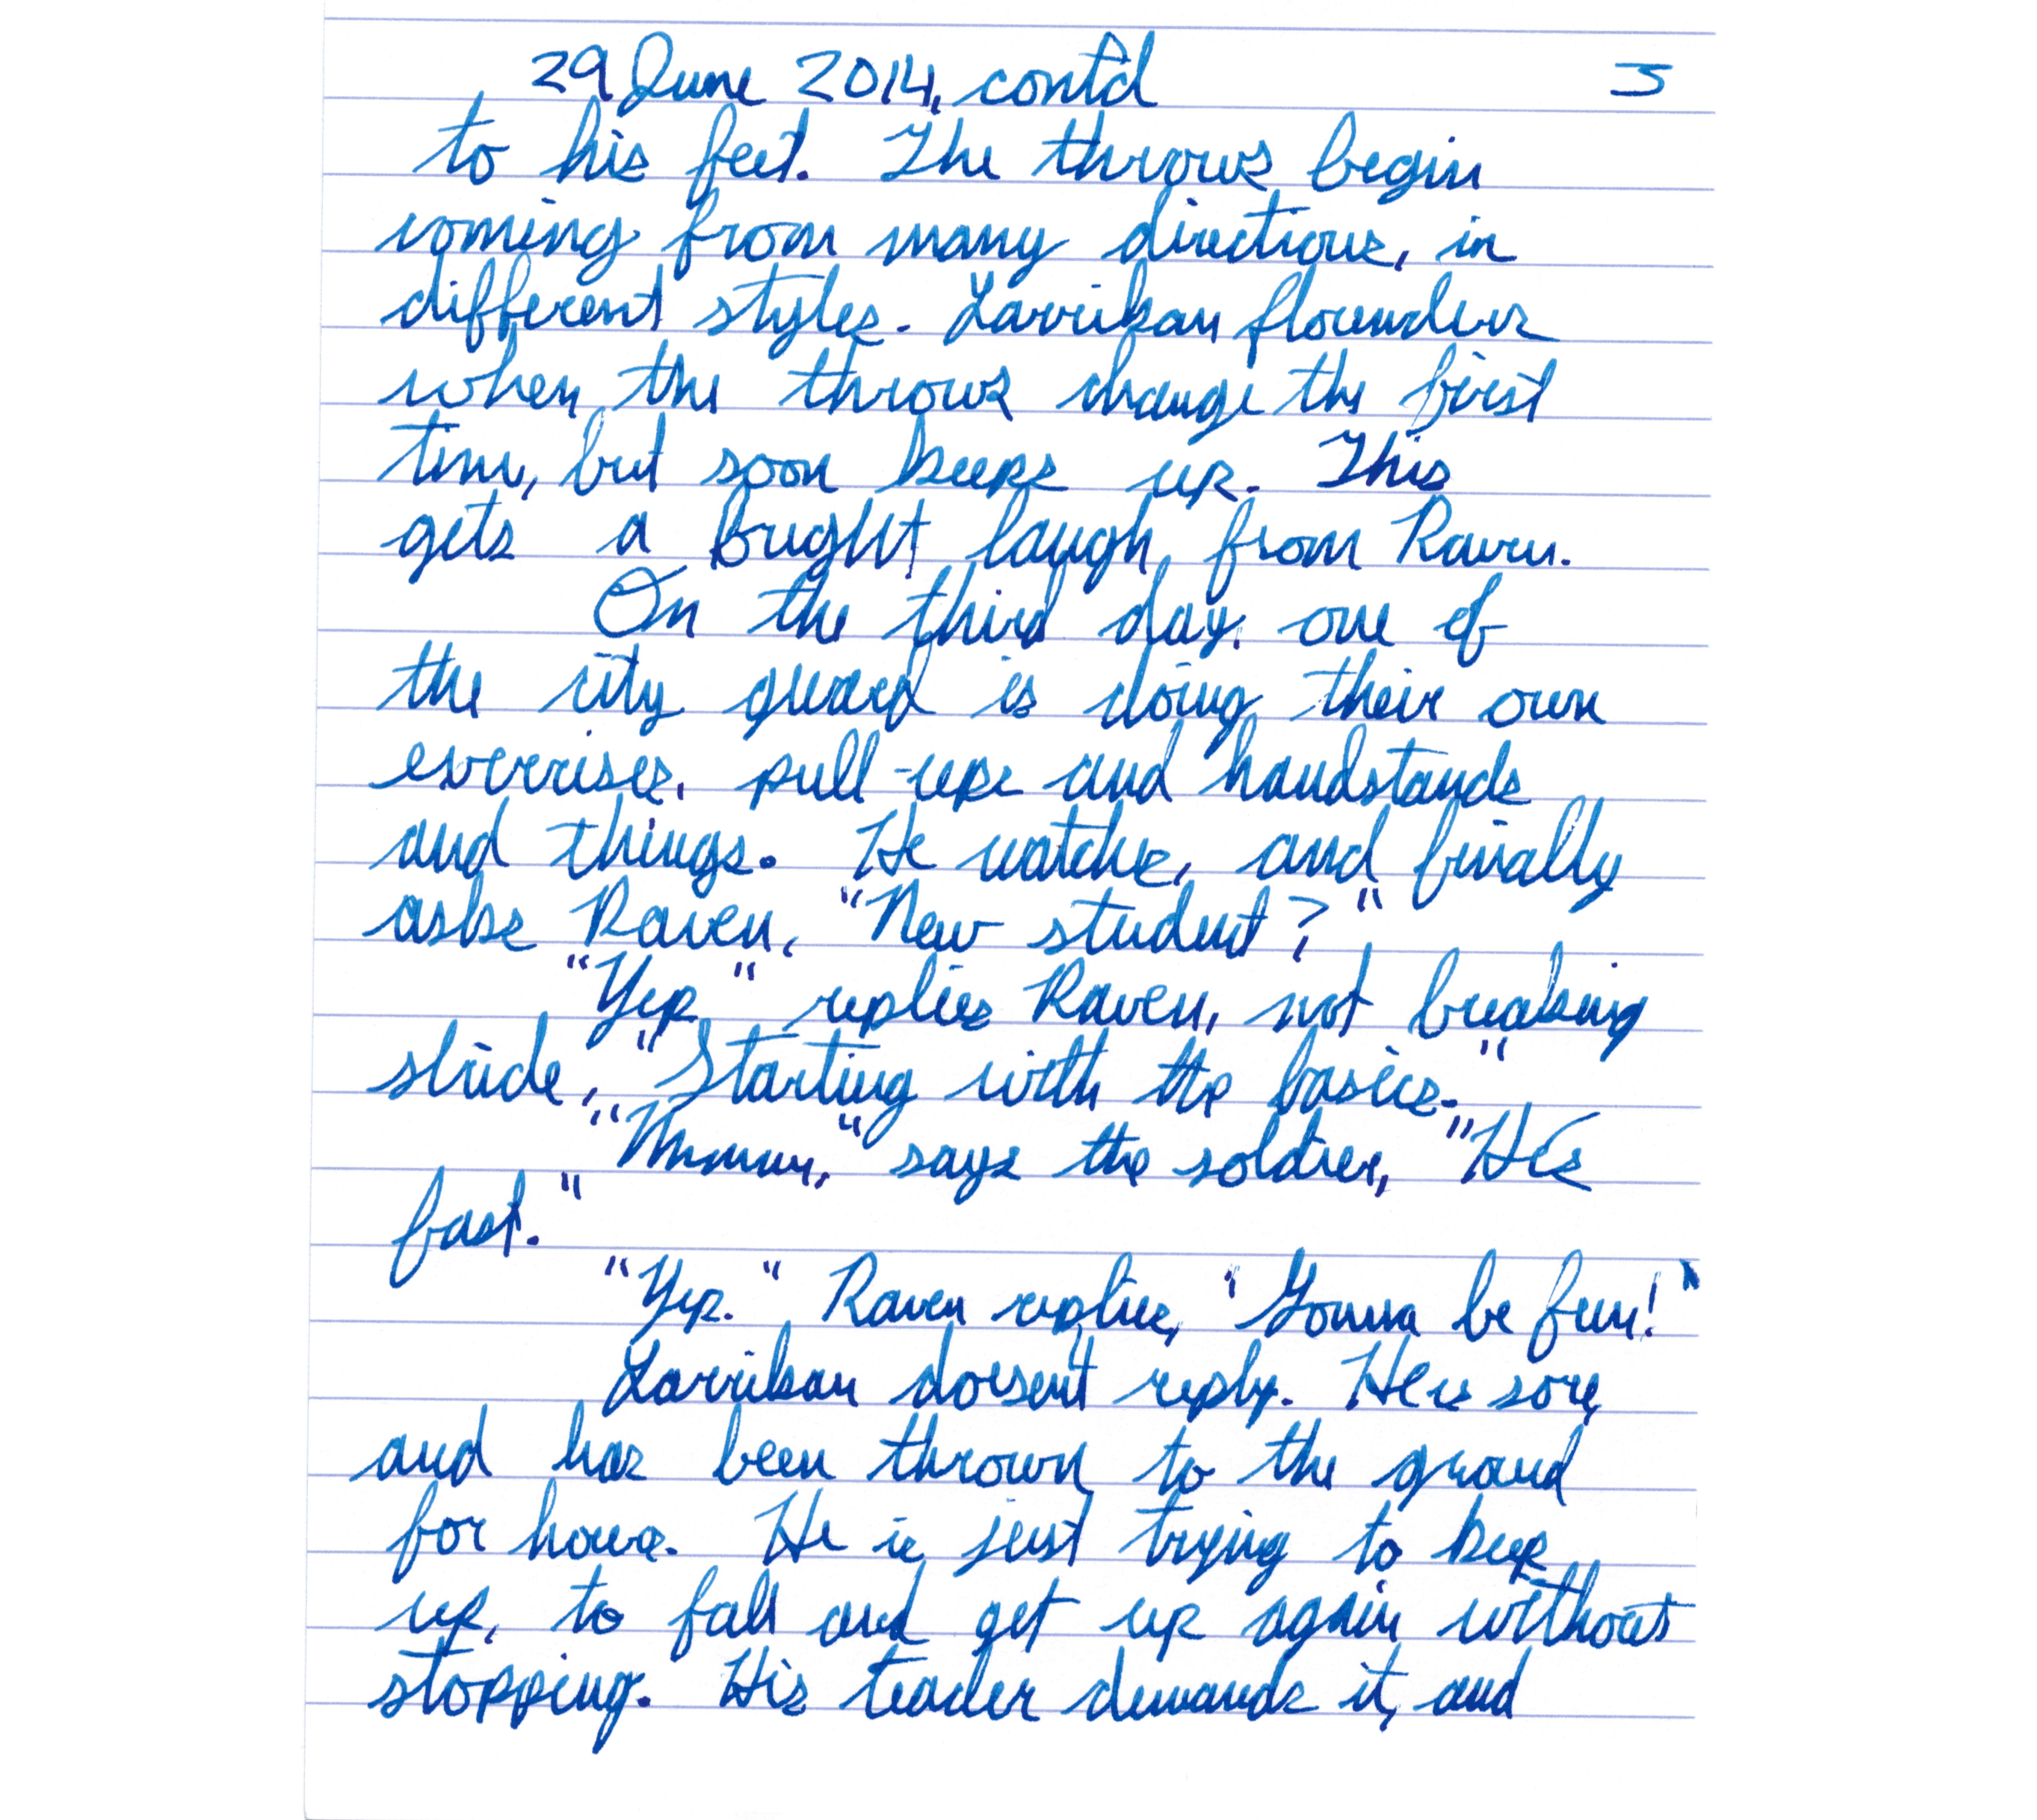 29 June 2014, cont'd 3
to his feet. The throws begin
coming from many directions, in
different styles. Larrikan flounders
when the throws change the first
time, but soon keeps up. This
gets a bright laugh from Raven.
On the third day, one of
the city guard is doing their own
exercises, pull-ups and handstands
and things. He watches, and finally
asks Raven, "New student?"
"Yep," replies Raven, not breaking
stride, "Starting with the basics."
"Mmmm," says the soldier, "He's
fast."
"Yep." Raven replies, "Gonna be fun!"
Larrikan doesn't reply. He is sore,
and has been thrown to the ground
for hours. He is just trying to keep
up, to fall and get up again without
stopping. His teacher demands it, and